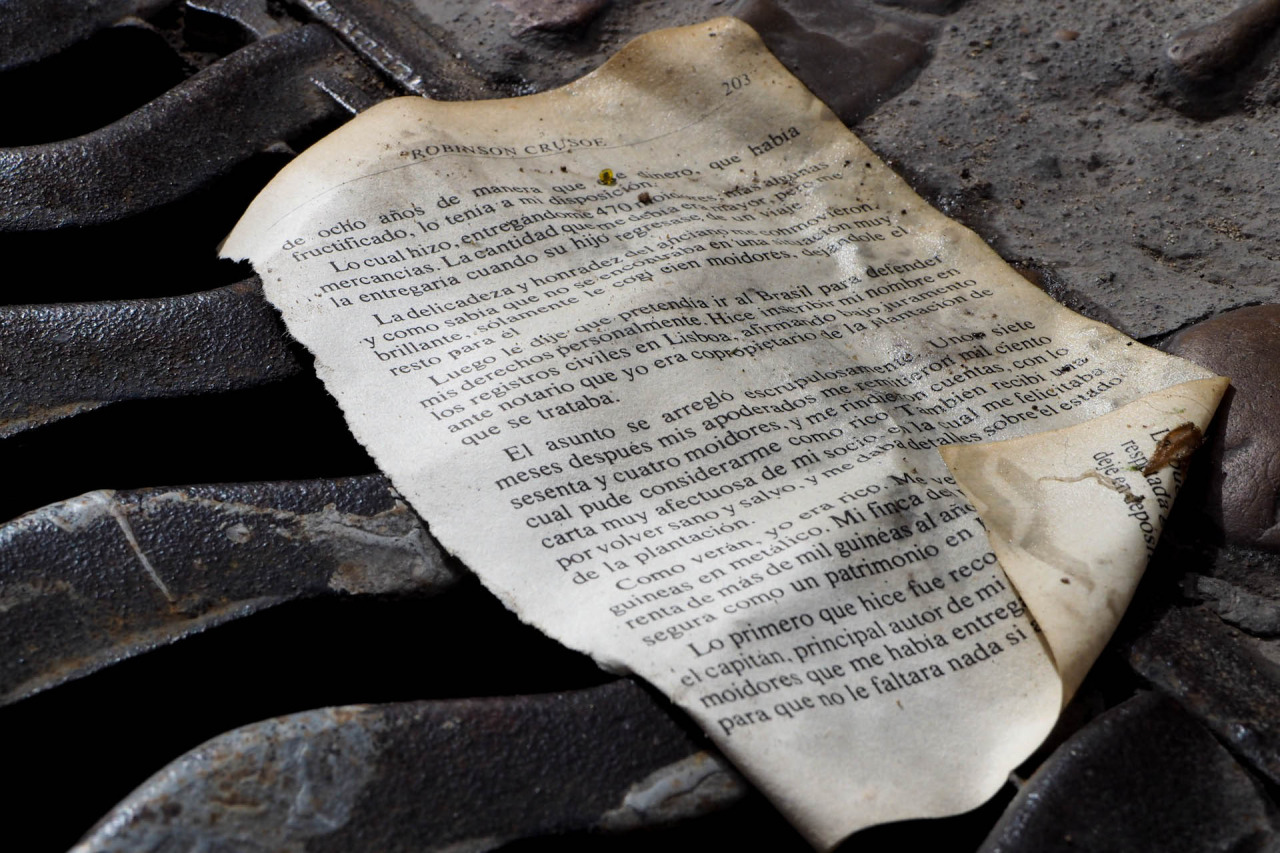 203
ROBINSON CRUSOE
de ocho años de manera que dinero, que había
fructificado, lo tenía a mi disposición.
Lo cual hizo, entregándome 470 algunas
mercancías. La cantidad que me debía era mayor, pero me
la entregaría cuando su hijo regresase de un viaje.
La delicadeza y honradez del anciano me conmovieron,
y como sabía que no se encontraba en una situación muy
brillante, sólamente le cogí cien moidores, dejándole el
resto para él.
Luego le dije que pretendía ir al Brasil para defender
mis derechos personalmente. Hice inscribir mi nombre en
los registros civiles en Lisboa, afirmando bajo juramento
ante notario que yo era copropietario de la plantación de
que se trataba.
El asunto se arregló escrupulosamente. Unos siete
meses después mis apoderados me remitieron mil ciento
sesenta y cuatro moidores, y me rindieron cuentas, con lo
cual pude considerarme como rico. También recibí una
carta muy afectuosa de mi socio, en la cual me felicitaba
por volver sano y salvo, y me daba detalles sobre el estado
de la plantación.
Como verán, yo era rico. Me ve
guineas en metálico. Mi finca de
renta de más de mil guineas al año
segura como un patrimonio en
Lo primero que hice fue reco
el capitán, principal autor de mi
moidores que me había entreg
para que no le faltara nada si